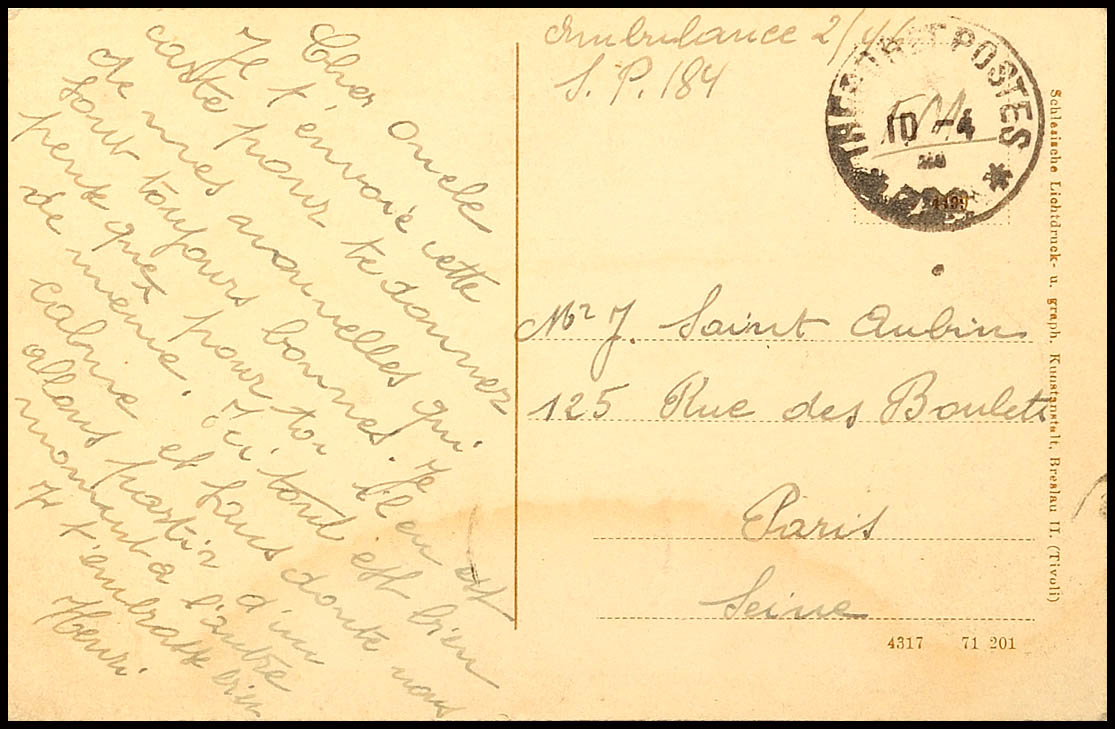 Cher oncle
Je t'envoie cette
carte pour te donner
de mes nouvelles qui
sont toujours bonnes. Je
pense que pour toi il en est
de même. Ici tout est bien
calme et sans doute nous
allons partir d'un
moment a l'autre
Je t'embrasse bien
Henri
Ambulance 2/44
S. P. 184
TRESOR ET POSTES
F.M.
10 -4
Mr J. Saint Aubin
125 Rue des Boulets
Paris
Seine
4317 71 201
Schlesische Lichtdruck- u. graph. Kunstanstalt, Breslau II. (Tivoli)